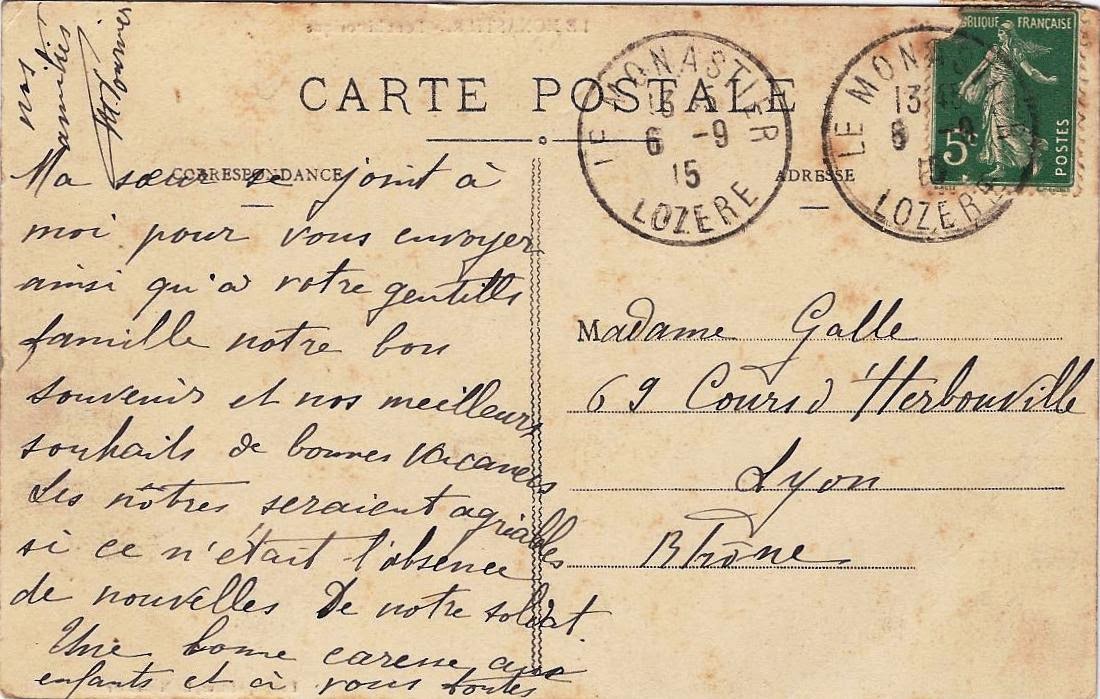 CARTE POSTALE
CORRESPONDANCE
Ma sœur se joint à
moi pour vous envoyer
ainsi qu'à votre gentille
famille notre bon
souvenir et nos meilleurs
souhaits de bonnes vacances
Les nôtres seraient agréables
si ce n'était l'absence
de nouvelles De notre soldat.
Une bonne caresse aux
enfants et à vous toutes
nos
amitiés
ADRESSE
Madame Galle
69 Cours d'Herbouville
Lyon
Rhône
LE MONASTIER
6 -9
15
LOZERE
LE MONASTIER
13 45
6 -9
LOZERE
BLIQUE FRANÇAISE
5
POSTES